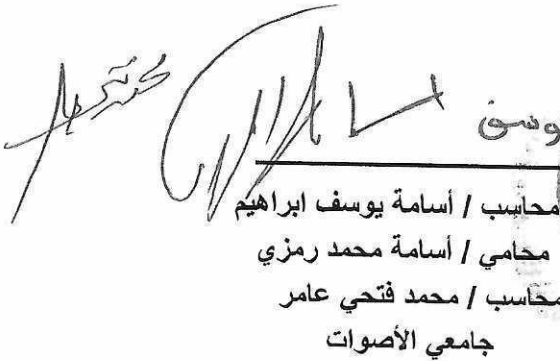 محاسب / أسامة يوسف ابراهيم
محامي / أسامة محمد رمزي
محاسب / محمد فتحي عامر
جامعي الأصوات